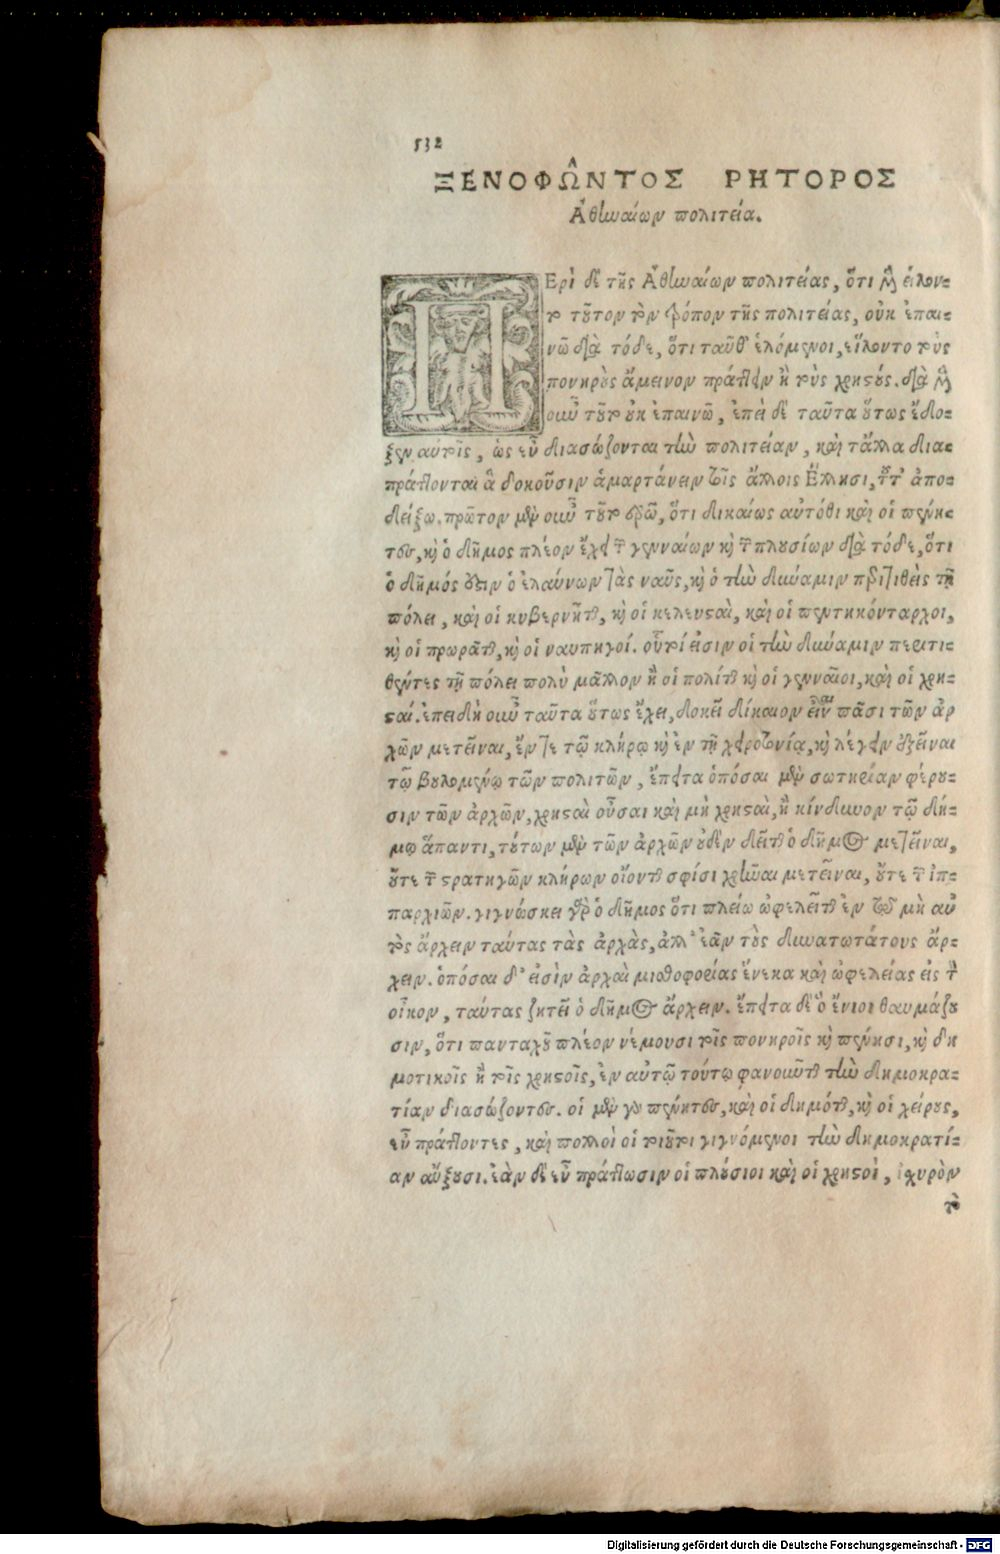 532
ΞΕΝΟΦΩ͂ΝΤΟΣ ΡΗΤΟΡΟΣ
Ἀθηναίων πολιτεία.
ΠΕρὶ δὲ τῆς Ἀθηναίων πολιτείας, ὅτι μὲν εἵλον-
το τοῦτον τὸν τρόπον τῆς πολιτείας, οὐκ ἐπαι-
νῶ διὰ τόδε, ὅτι ταῦθ' ἑλόμενοι, εἵλοντο τοὺς
πονηροὺς ἄμεινον πράττειν ἢ τοὺς χρηστούς. διὰ μὲν
οὖν τοῦτο οὐκ ἐπαινῶ, ἐπεὶ δὲ ταῦτα οὕτως ἔδο-
ξεν αὐτοῖς, ὡς εὖ διασώζονται τὴν πολιτείαν, καὶ τἄλλα δια-
πράττονται ἃ δοκοῦσιν ἁμαρτάνειν τοῖς ἄλλοις Ἕλλησι, τοῦτ' ἀπο-
δείξω. πρῶτον μὲν οὖν τοῦτο ἐρῶ, ὅτι δικαίως αὐτόθι καὶ οἱ πένη-
τες, καὶ ὁ δῆμος πλέον ἔχει τῶν γενναίων καὶ τῶν πλουσίων διὰ τόδε, ὅτι
ὁ δῆμός ἐστιν ὁ ἐλαύνων τὰς ναῦς, καὶ ὁ τὴν δύναμιν περιτιθεὶς τῇ
πόλει, καὶ οἱ κυβερνῆται, καὶ οἱ κελευσταὶ, καὶ οἱ πεντηκόνταρχοι,
καὶ οἱ πρωρᾶται, καὶ οἱ ναυπηγοί. οὗτοί εἰσιν οἱ τὴν δύναμιν περιτι-
θέντες τῇ πόλει πολὺ μᾶλλον ἢ οἱ πολῖται καὶ οἱ γενναῖοι, καὶ οἱ χρη-
στοί. ἐπειδὴ οὖν ταῦτα οὕτως ἔχει, δοκεῖ δίκαιον εἶναι πᾶσι τῶν ἀρ
χῶν μετεῖναι, ἔν τε τῷ κλήρῳ καὶ ἐν τῇ χειροτονίᾳ, καὶ λέγειν ἐξεῖναι
τῷ βουλομένῳ τῶν πολιτῶν, ἔπειτα ὁπόσαι μὲν σωτηρίαν φέρου-
σιν τῶν ἀρχῶν, χρησταὶ οὖσαι καὶ μὴ χρησταὶ, ἢ κίνδυνον τῷ δή-
μῳ ἅπαντι, τούτων μὲν τῶν ἀρχῶν οὐδὲν δεῖται ὁ δῆμος μετεῖναι,
οὔτε τῶν στρατηγῶν κλήρων οἴονται σφίσι χρῆναι μετεῖναι, οὔτε τῶν ἱπ-
παρχιῶν. γιγνώσκει γὰρ ὁ δῆμος ὅτι πλείω ὠφελεῖται ἐν τῷ μὴ αὐ
τὸς ἄρχειν ταύτας τὰς ἀρχὰς, ἀλλ' ἐᾶν τοὺς δυνατωτάτους ἄρ-
χειν. ὁπόσαι δ' εἰσὶν ἀρχαὶ μισθοφορίας ἕνεκα καὶ ὠφελείας εἰς τὸν
οἶκον, ταύτας ζητεῖ ὁ δῆμος ἄρχειν. ἔπειτα δὲ ὃ ἔνιοι θαυμάζου
σιν, ὅτι πανταχοῦ πλέον νέμουσι τοῖς πονηροῖς καὶ πένησι, καὶ δη
μοτικοῖς ἢ τοῖς χρηστοῖς, ἐν αὐτῷ τούτῳ φανοῦνται τὴν δημοκρα-
τίαν διασώζοντες. οἱ μὲν γὰρ πένητες, καὶ οἱ δημόται, καὶ οἱ χείρους,
εὖ πράττοντες, καὶ πολλοὶ οἱ τοιοῦτοι γιγνόμενοι τὴν δημοκρατί-
αν αὔξουσι. ἐὰν δὲ εὖ πράττωσιν οἱ πλούσιοι καὶ οἱ χρηστοὶ, ἰσχυρὸν
τὸ
Digitalisierung gefördert durch die Deutsche Forschungsgemeinschaft - DFG